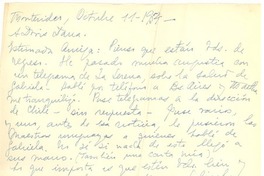 Montevideo, Octubre 11-1954 —
Doris Dana.
Estimada Amiga: Pienso que están Uds. de
regreso. He pasado mucha angustia con
un telegrama de La Serena, sobre la salud de
Gabriela. Hablé por teléfono a Bs Aires y
me tranquilicé. Puse telegramas a la dirección
de Chile - sin respuesta -
y una, ante de sus noticias
maestras uruguayas a quienes hablé de
Gabriela. No sé si nada de esto llegó a
sus manos. (También una carta mía).
Lo que importa es que estén bien y